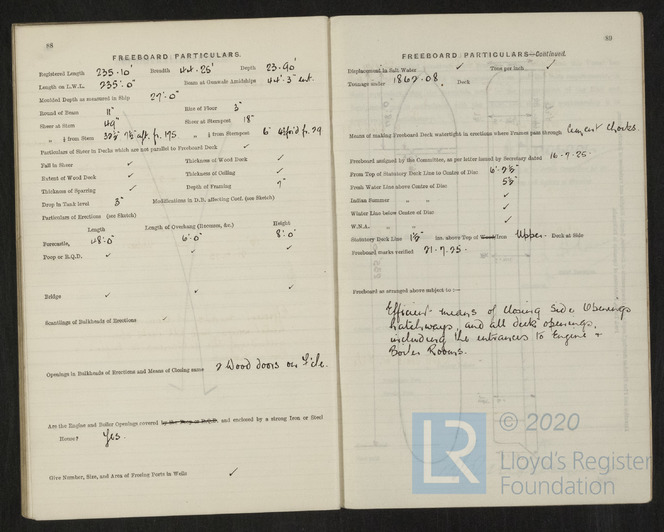 88
FREEBOARD PARTICULARS.
Registered Length 235·10' Breadth 44·25' Depth 23·40'
Length on L.W.L. 235'·0" Beam at Gunwale Amidships 44'·3" ext.
Moulded Depth as measured in Ship 27'·0"
Round of Beam 11" Rise of Floor 3"
Sheer at Stem 49" Sheer at Sternpost 18"
" ⅛ from Stem " ⅛ from Sternpost
Particulars of Sheer in Decks which are not parallel to Freeboard Deck ✓
Fall in Sheer ✓ Thickness of Wood Deck ✓
Extent of Wood Deck ✓ Thickness of Ceiling ✓
Thickness of Sparring ✓ Depth of Framing 7"
Drop in Tank level 3" Modifications in D.B. affecting Coef. (see Sketch)
Particulars of Erections (see Sketch)
Length Length of Overhang (Recesses, &c.) Height
Forecastle, 48'·0" 6'·0" 8'·0"
Poop or R.Q.D. ✓ ✓ ✓
Bridge ✓ ✓ ✓
Scantlings of Bulkheads of Erections ✓
Openings in Bulkheads of Erections and Means of Closing same 2 Wood doors on F'c'le.
Are the Engine and Boiler Openings covered by the Poop or R.Q.D. and enclosed by a strong Iron or Steel
House? Yes.
Give Number, Size, and Area of Freeing Ports in Wells ✓
89
FREEBOARD PARTICULARS—Continued.
Displacement in Salt Water ✓ Tons per inch ✓
Tonnage under 1867·08 Deck
Means of making Freeboard Deck watertight in erections where Frames pass through Cement chocks.
Freeboard assigned by the Committee, as per letter issued by Secretary dated 16-7-25.
From Top of Statutory Deck Line to Centre of Disc 6'·7½"
Fresh Water Line above Centre of Disc 5½"
Indian Summer " " ✓
Winter Line below Centre of Disc ✓
W.N.A. " " ✓
Statutory Deck Line 1½" ins. above Top of Wood/Iron Upper Deck at Side
Freeboard marks verified 21.7.25.
Freeboard as arranged above subject to :—
Efficient means of closing side openings
hatchways, and all deck openings,
including the entrances to Engine +
Boiler Rooms.
LR
© 2020
Lloyd's Register
Foundation